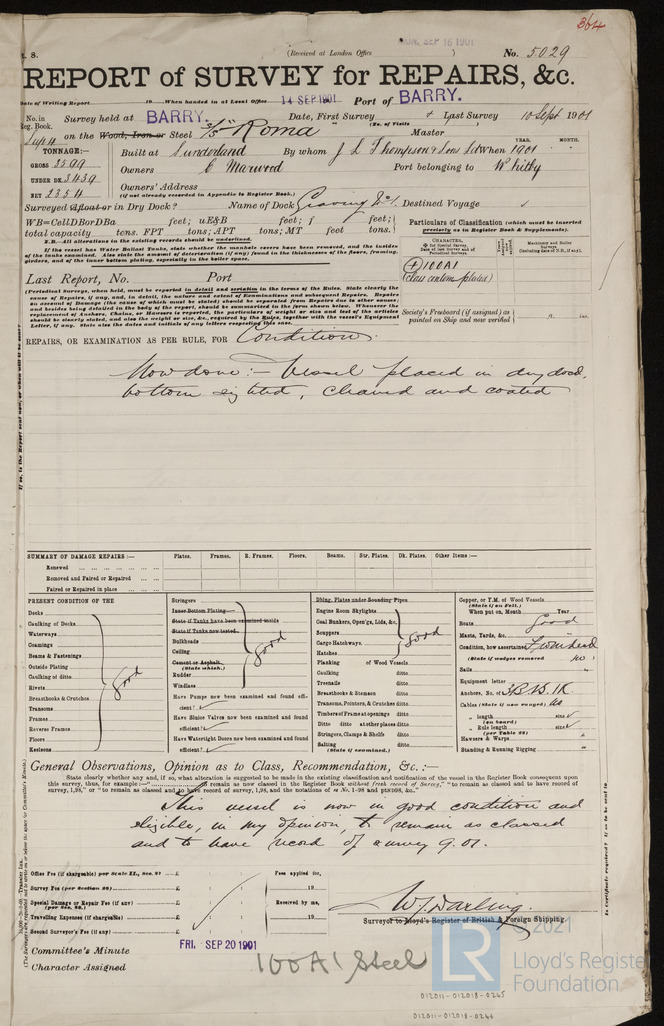 364
t. 8.
(Received at London Office
MON. SEP 16 1901
No. 5029
REPORT of SURVEY for REPAIRS, &c.
Date of Writing Report 19 When handed in at Local Office 14 SEP. 1901 Port of BARRY.
No. in Reg. Book. Survey held at BARRY. Date, First Survey & Last Survey 10 Sept 1901
(No. of Visits
on the Wood, Iron or Steel S/S "Roma" Master
TONNAGE:— Built at Sunderland By whom J L Thompson & Sons Ld When 1901
YEAR. MONTH.
GROSS 3599
Owners C Marwood Port belonging to Whitby
UNDER DK. 3439
Owners' Address
(if not already recorded in Appendix to Register Book.)
NET 2354
Surveyed Afloat or in Dry Dock? Name of Dock Graving No 1. Destined Voyage
WB=CellDBorDBa feet; uE&B feet; f feet;
total capacity tons. FPT tons; APT tons; MT feet tons.
Particulars of Classification (which must be inserted precisely as in Register Book & Supplement).
N.B.—All alterations in the existing records should be underlined.
If the vessel has Water Ballast Tanks, state whether the manhole covers have been removed, and the insides of the tanks examined. Also state the amount of deterioration (if any) found in the thicknesses of the floors, framing, girders, and of the inner bottom plating, especially in the boiler space.
+100A1
(Class contem plated)
Last Report, No. Port
(Periodical Surveys, when held, must be reported in detail and seriatim in the terms of the Rules. State clearly the cause of Repairs, if any, and, in detail, the nature and extent of Examinations and subsequent Repairs. Repairs on account of Damage (the cause of which must be stated) should be separated from Repairs due to other causes;
Society's Freeboard (if assigned) as painted on Ship and now verified ft. ins.
REPAIRS, OR EXAMINATION AS PER RULE, FOR Condition.
Now done:— Vessel placed in dry dock,
bottom sighted, cleaned and coated
SUMMARY OF DAMAGE REPAIRS:— Plates. Frames. R. Frames. Floors. Beams. Str. Plates. Dk. Plates. Other Items:—
Renewed
Removed and Faired or Repaired
Faired or Repaired in place
PRESENT CONDITION OF THE
Decks
Caulking of Decks
Waterways
Coamings
Beams & Fastenings
Outside Plating
Caulking of ditto
Rivets
Breasthooks & Crutches
Transoms
Frames
Reverse Frames
Floors
Keelsons
good
Stringers
Inner Bottom Plating
State if Tanks have been examined inside
State if Tanks now tested
Bulkheads
Ceiling
Cement or Asphalt.
(State which.)
Rudder
Windlass
good
Have Pumps now been examined and found efficient?
Have Sluice Valves now been examined and found efficient?
Have Watertight Doors now been examined and found efficient?
Dblng. Plates under Sounding Pipes
Engine Room Skylights
Coal Bunkers, Open'gs, Lids, &c.
Scuppers
Cargo Hatchways
Hatches
good
Planking of Wood Vessels
Caulking ditto
Treenails ditto
Breasthooks & Stemson ditto
Transoms, Pointers, & Crutches ditto
Timbers of Frame at openings ditto
Ditto ditto at other places ditto
Stringers, Clamps & Shelfs ditto
Salting ditto
(State if examined.)
Copper, or Y.M. of Wood Vessels
(State if on Felt.)
When put on, Month Year
Boats good
Masts, Yards, &c.
Condition, how ascertained
(State if wedges removed no)
Sails
Equipment letter
Anchors, No. of 3B. 1S. 1K
Cables (State if now ranged) no
" length size
(on board)
" Rule length size
(per Table 22)
Hawsers & Warps
Standing & Running Rigging
General Observations, Opinion as to Class, Recommendation, &c. :—
State clearly whether any and, if so, what alteration is suggested to be made in the existing classification and notification of the vessel in the Register Book consequent upon
This vessel is now in good condition and
eligible, in my opinion, to remain as classed
and to have record of survey 9.01.
Office Fee (if chargeable) per Scale II., Sec. 27 £
Survey Fee (per Section 28) £
Special Damage or Repair Fee (if any) £
(per Sec. 28.)
Travelling Expenses (if chargeable) £
Second Surveyor's Fee (if any) £
Fees applied for, 19
Received by me, 19
W J Darling.
Surveyor to Lloyd's Register of British & Foreign Shipping.
Committee's Minute FRI. SEP 20 1901
Character Assigned 100A1 Steel
LR
2021
Lloyd's Register
Foundation
012011-012018-0265
012011-012018-0266